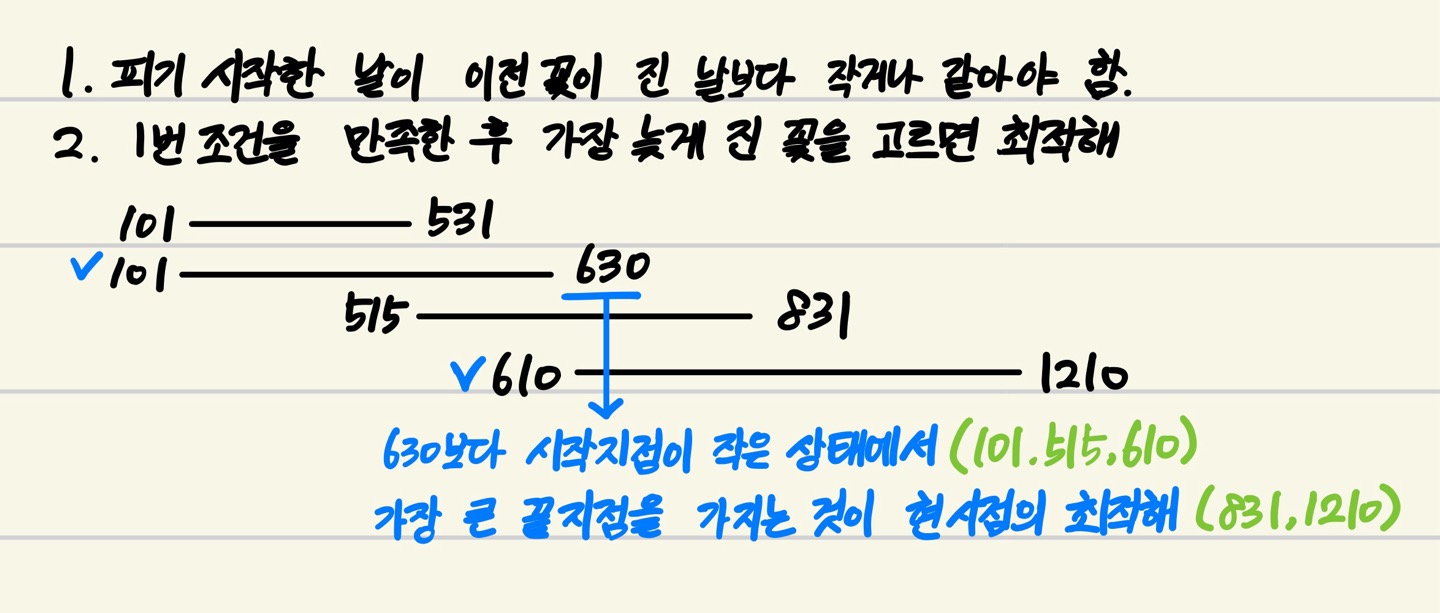 1. 피기 시작한 날이 이전 꽃이 진 날보다 작거나 같아야 함.
2. 1번 조건을 만족한 후 가장 늦게 진 꽃을 고르면 최적해
101 531
✓ 101 630
515 831
✓ 610 1210
630보다 시작지점이 작은 상태에서 (101.515.610)
가장 큰 끝지점을 가지는 것이 현시점의 최적해 (831,1210)